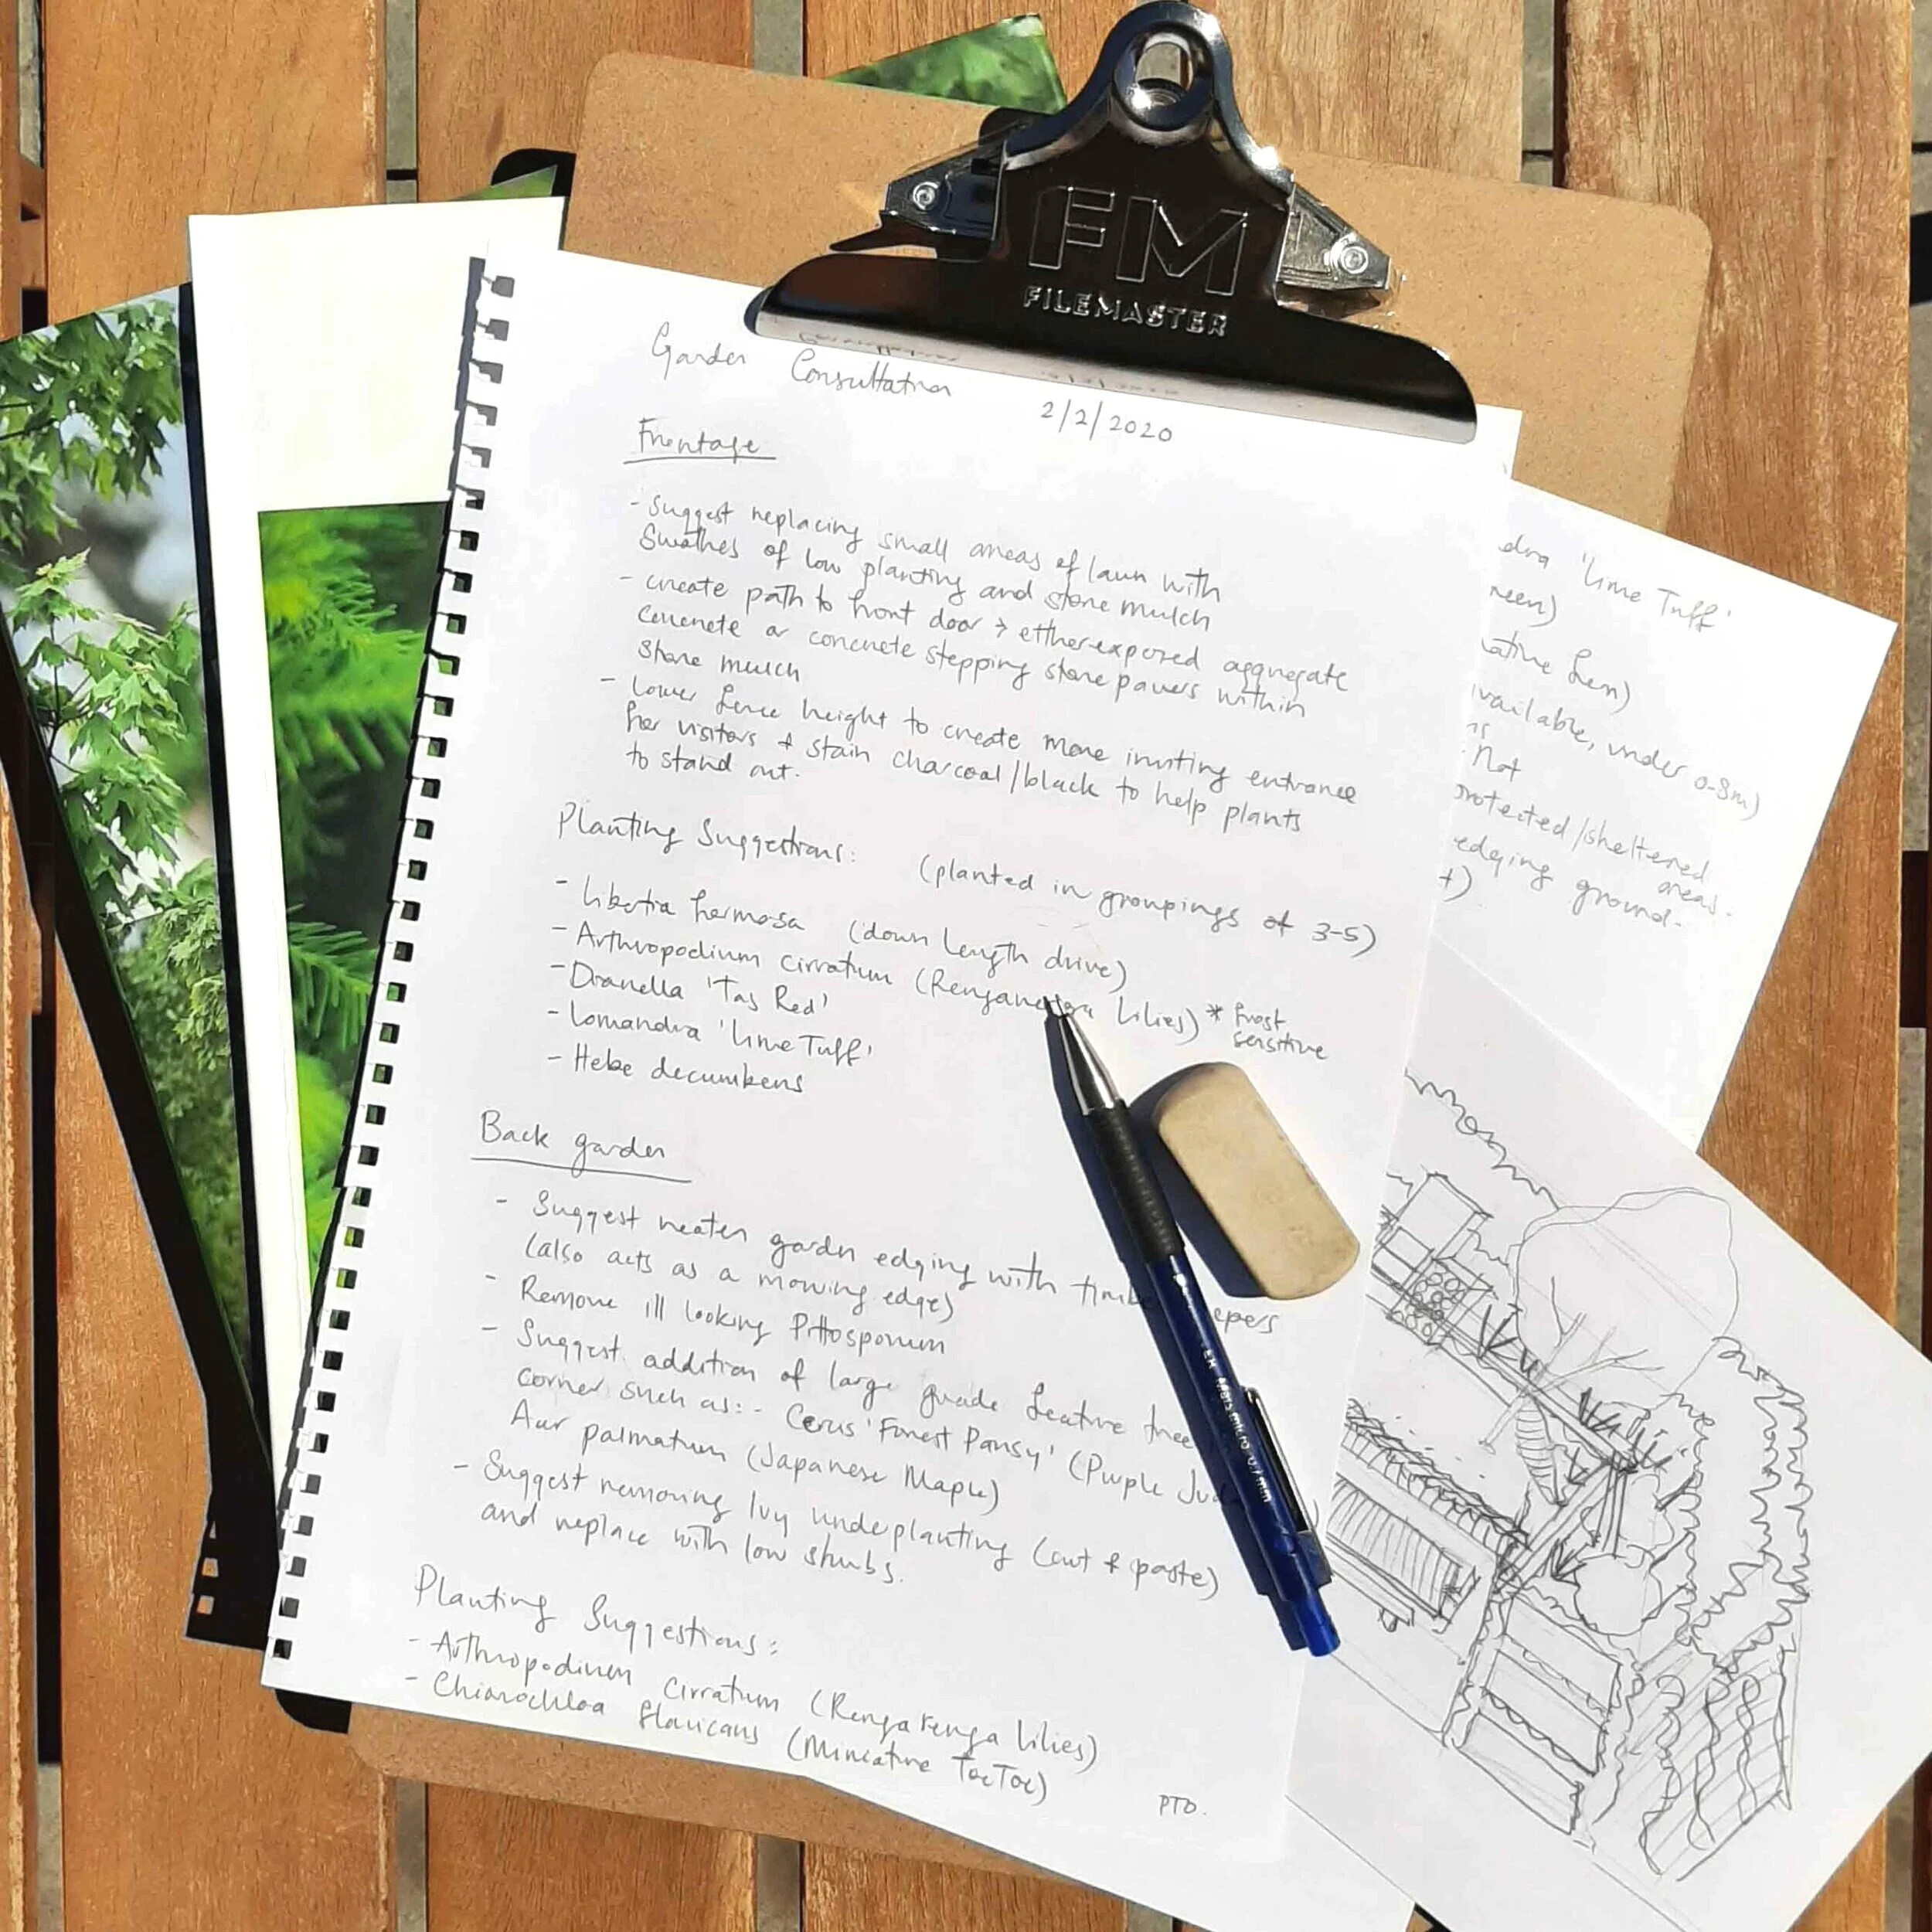 FM
FILEMASTER
Garden Consultation
2/2/2020
Frontage
- Suggest replacing small areas of lawn with
swathes of low planting and stone mulch
- create path to front door → either exposed aggregate
concrete or concrete stepping stone pavers within
stone mulch
- Lower fence height to create more inviting entrance
for visitors + stain charcoal/black to help plants
to stand out.
Planting Suggestions: (planted in groupings of 3-5)
- Libertia formosa (down length drive)
- Arthropodium cirratum (Lilies) * frost
sensitive
- Dianella 'Tas Red'
- Lomandra 'Lime Tuff'
- Hebe decumbens
Back garden
- Suggest neater garden edging with
(also acts as a mowing edge)
- Remove ill looking Pittosporum
- Suggest addition of large grade feature tree
corner such as:- Cercis 'Forest Pansy' (Purple
Acer palmatum (Japanese Maple)
- Suggest removing Ivy underplanting (cut + paste)
and replace with low shrubs.
Planting Suggestions:
- Arthropodium cirratum (Renga renga Lilies)
- Chionochloa flavicans (Miniature Toe Toe)
PTO.
'Lime Tuff'
under 0.8m)
Not
protected/sheltered
areas.
edging ground-